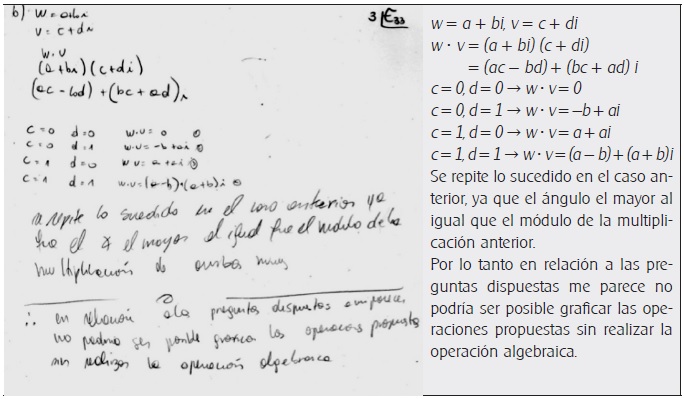 b) w = a+bi
v = c+di
3 E33
w.v
(a+bi)(c+di)
(ac-bd)+(bc+ad)i
c=0 d=0 w.v=0
c=0 d=1 w.v=-b+ai
c=1 d=0 w.v=a+ai
c=1 d=1 w.v=(a-b)+(a+b)i
se repite lo sucedido en el caso anterior ya
el ∡ el mayor al igual que el modulo de la
multiplicación de
∴ en relación a la preguntas dispuestas me parece
no podria ser posible graficar las operaciones propuestas
sin realizar la operación algebraica
w = a + bi, v = c + di
w · v = (a + bi) (c + di)
= (ac – bd) + (bc + ad) i
c = 0, d = 0 → w · v = 0
c = 0, d = 1 → w · v = –b + ai
c = 1, d = 0 → w · v = a + ai
c = 1, d = 1 → w · v = (a – b) + (a + b)i
Se repite lo sucedido en el caso an-
terior, ya que el ángulo el mayor al
igual que el módulo de la multipli-
cación anterior.
Por lo tanto en relación a las pre-
guntas dispuestas me parece no
podría ser posible graficar las ope-
raciones propuestas sin realizar la
operación algebraica.